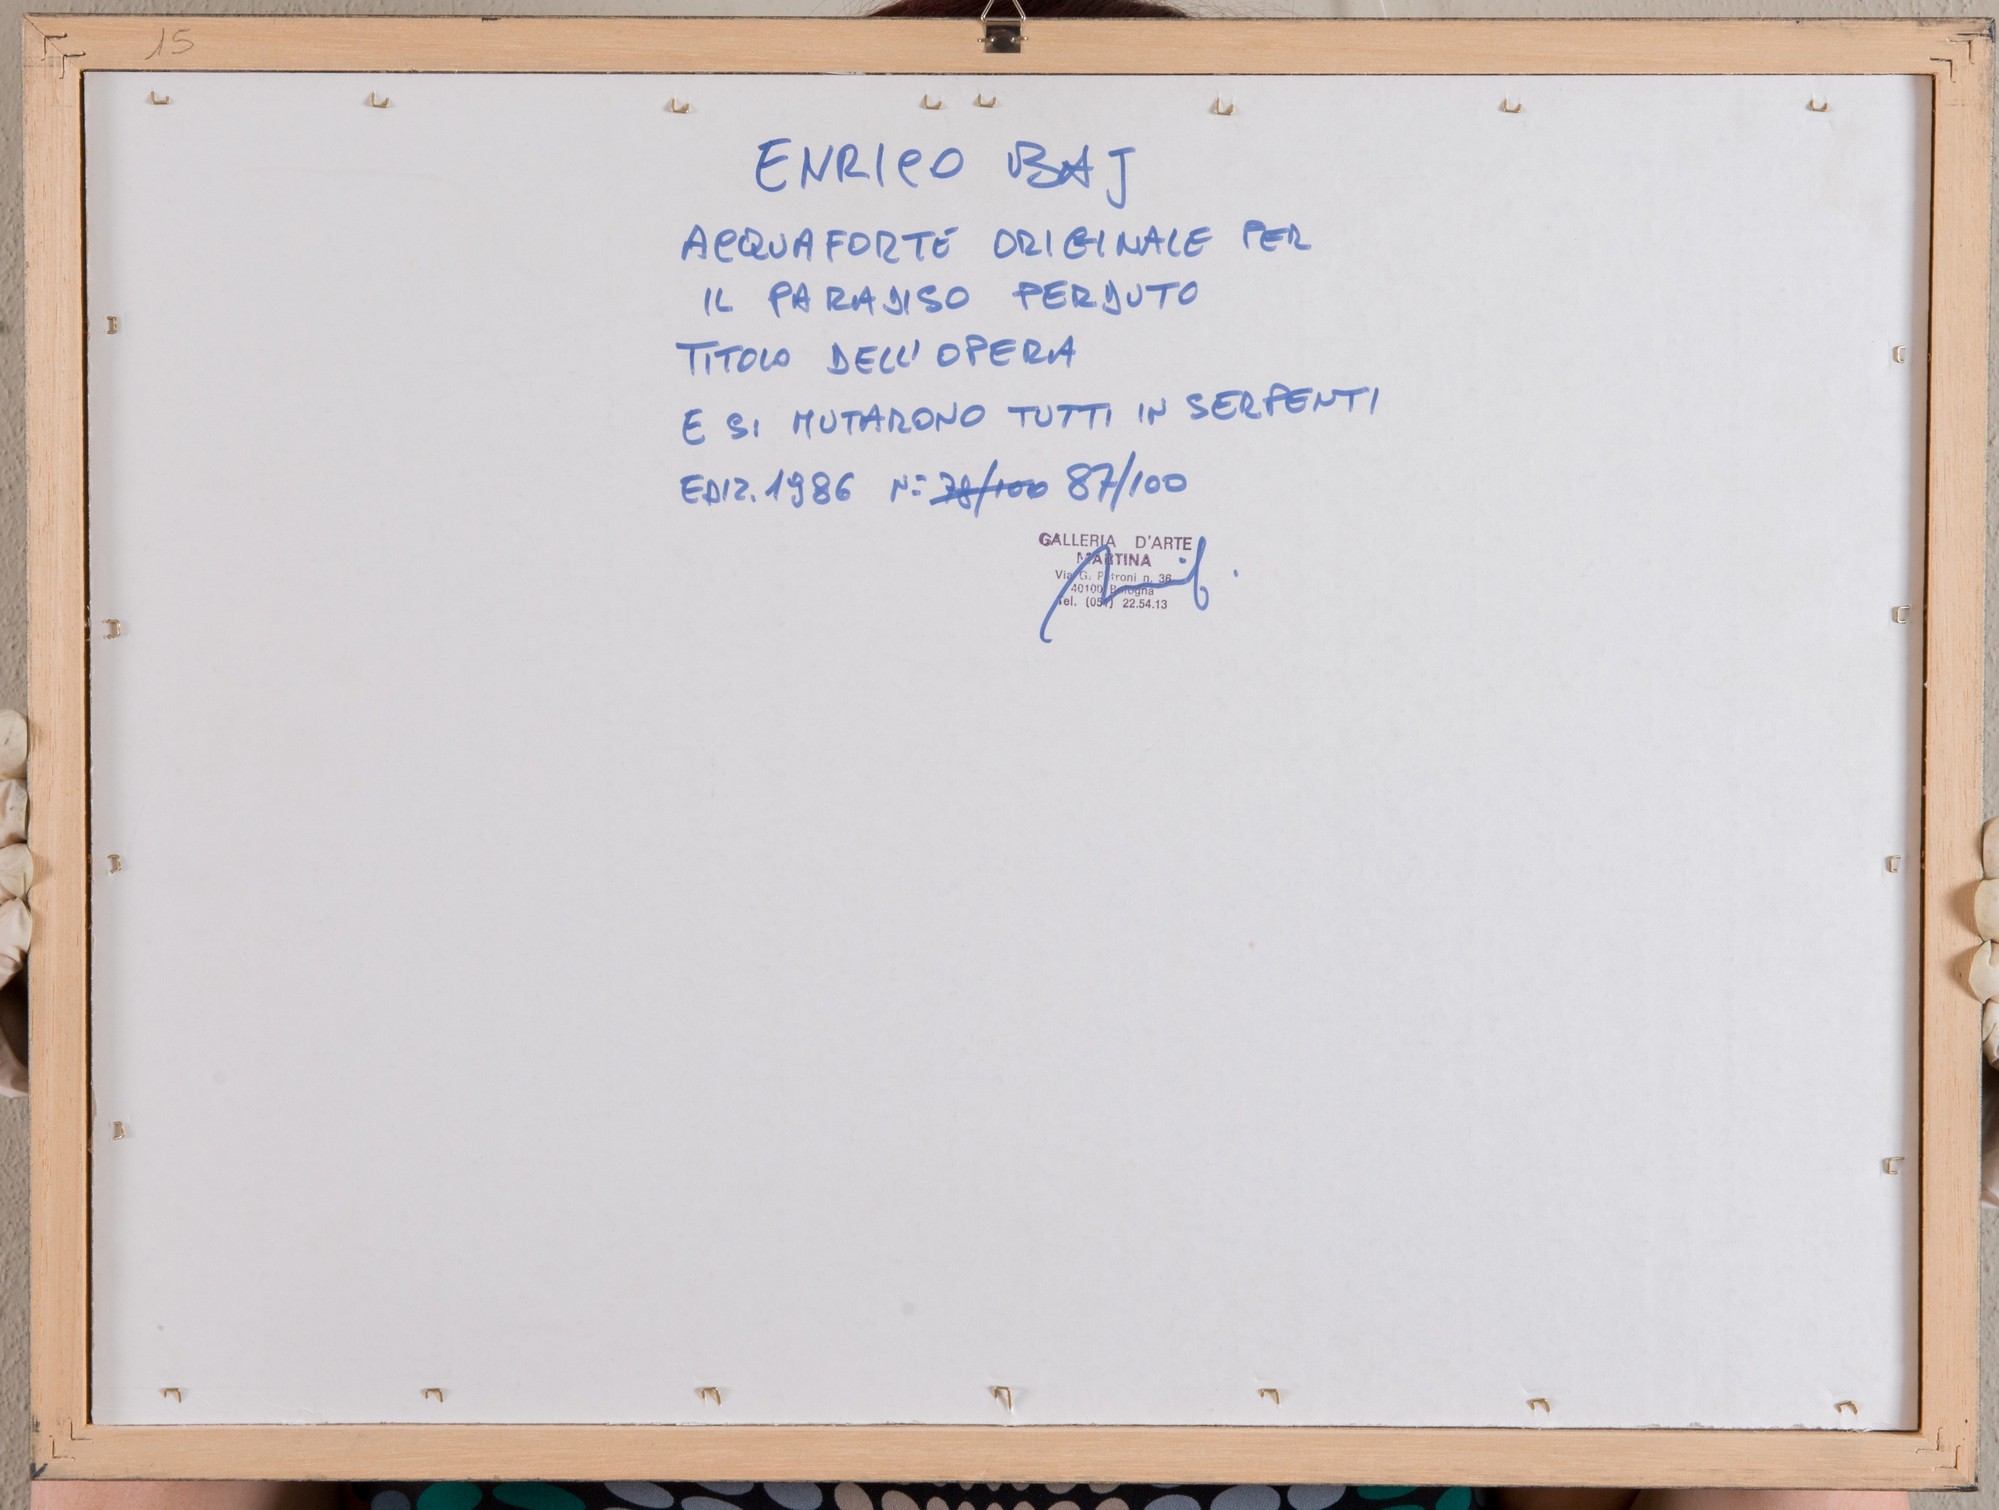 15
ENRICO BAJ
ACQUAFORTE ORIGINALE PER
IL PARADISO PERDUTO
TITOLO DELL'OPERA
E SI MUTARONO TUTTI IN SERPENTI
EDIZ. 1986 N= 78/100 87/100
GALLERIA D'ARTE
MARTINA
Via G. Petroni n. 36
40100 Bologna
Tel. (051) 22.54.13